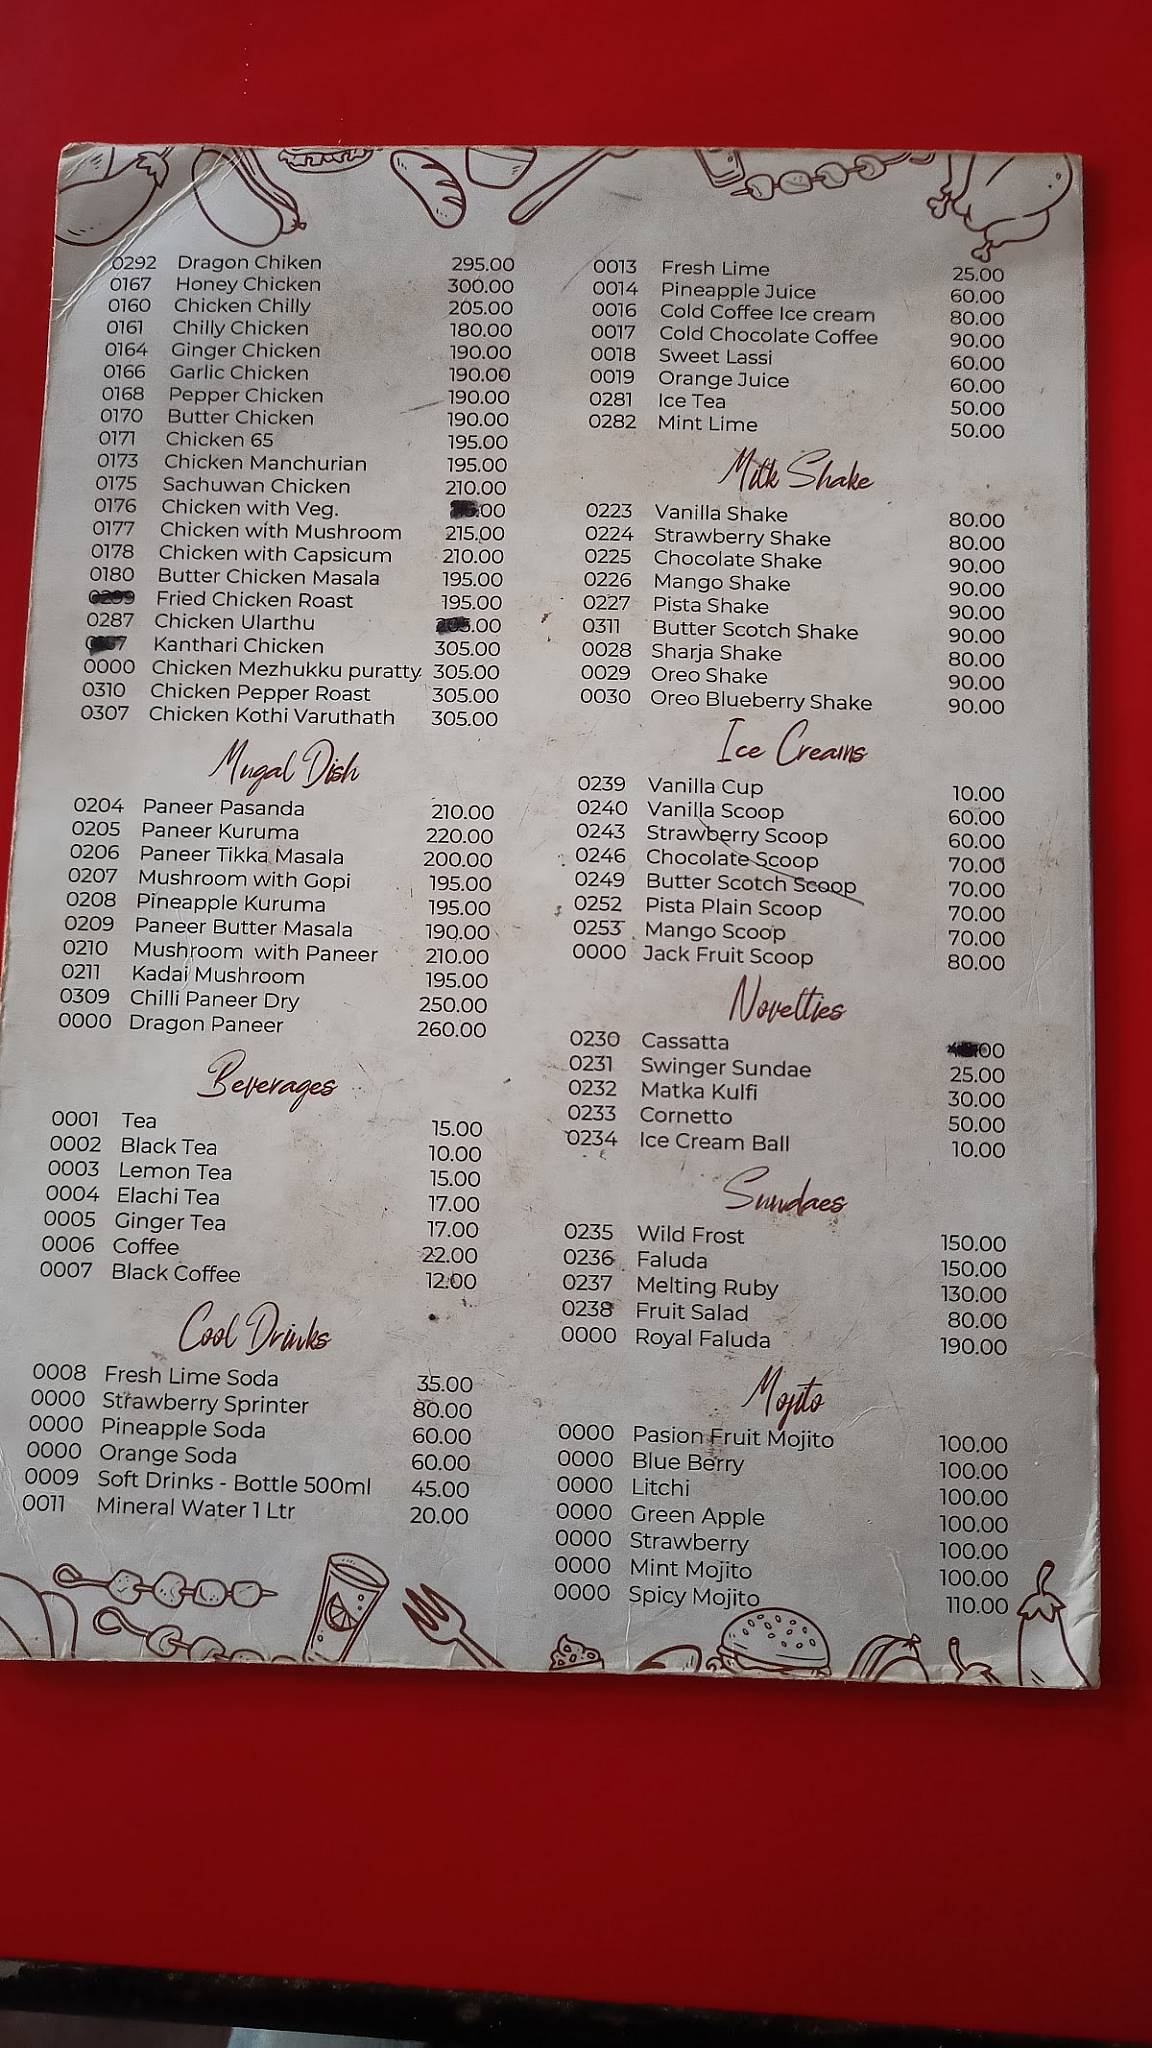 0292 Dragon Chiken 295.00
0167 Honey Chicken 300.00
0160 Chicken Chilly 205.00
0161 Chilly Chicken 180.00
0164 Ginger Chicken 190.00
0166 Garlic Chicken 190.00
0168 Pepper Chicken 190.00
0170 Butter Chicken 190.00
0171 Chicken 65 195.00
0173 Chicken Manchurian 195.00
0175 Sachuwan Chicken 210.00
0176 Chicken with Veg.
0177 Chicken with Mushroom 215.00
0178 Chicken with Capsicum 210.00
0180 Butter Chicken Masala 195.00
Fried Chicken Roast 195.00
0287 Chicken Ularthu
Kanthari Chicken 305.00
0000 Chicken Mezhukku puratty 305.00
0310 Chicken Pepper Roast 305.00
0307 Chicken Kothi Varuthath 305.00
Mugal Dish
0204 Paneer Pasanda 210.00
0205 Paneer Kuruma 220.00
0206 Paneer Tikka Masala 200.00
0207 Mushroom with Gopi 195.00
0208 Pineapple Kuruma 195.00
0209 Paneer Butter Masala 190.00
0210 Mushroom with Paneer 210.00
0211 Kadai Mushroom 195.00
0309 Chilli Paneer Dry 250.00
0000 Dragon Paneer 260.00
Beverages
0001 Tea 15.00
0002 Black Tea 10.00
0003 Lemon Tea 15.00
0004 Elachi Tea 17.00
0005 Ginger Tea 17.00
0006 Coffee 22.00
0007 Black Coffee 12.00
Cool Drinks
0008 Fresh Lime Soda 35.00
0000 Strawberry Sprinter 80.00
0000 Pineapple Soda 60.00
0000 Orange Soda 60.00
0009 Soft Drinks - Bottle 500ml 45.00
0011 Mineral Water 1 Ltr 20.00
0013 Fresh Lime 25.00
0014 Pineapple Juice 60.00
0016 Cold Coffee Ice cream 80.00
0017 Cold Chocolate Coffee 90.00
0018 Sweet Lassi 60.00
0019 Orange Juice 60.00
0281 Ice Tea 50.00
0282 Mint Lime 50.00
Milk Shake
0223 Vanilla Shake 80.00
0224 Strawberry Shake 80.00
0225 Chocolate Shake 90.00
0226 Mango Shake 90.00
0227 Pista Shake 90.00
0311 Butter Scotch Shake 90.00
0028 Sharja Shake 80.00
0029 Oreo Shake 90.00
0030 Oreo Blueberry Shake 90.00
Ice Creams
0239 Vanilla Cup 10.00
0240 Vanilla Scoop 60.00
0243 Strawberry Scoop 60.00
0246 Chocolate Scoop 70.00
0249 Butter Scotch Scoop 70.00
0252 Pista Plain Scoop 70.00
0253 Mango Scoop 70.00
0000 Jack Fruit Scoop 80.00
Novelties
0230 Cassatta
0231 Swinger Sundae 25.00
0232 Matka Kulfi 30.00
0233 Cornetto 50.00
0234 Ice Cream Ball 10.00
Sundaes
0235 Wild Frost 150.00
0236 Faluda 150.00
0237 Melting Ruby 130.00
0238 Fruit Salad 80.00
0000 Royal Faluda 190.00
Mojito
0000 Pasion Fruit Mojito 100.00
0000 Blue Berry 100.00
0000 Litchi 100.00
0000 Green Apple 100.00
0000 Strawberry 100.00
0000 Mint Mojito 100.00
0000 Spicy Mojito 110.00